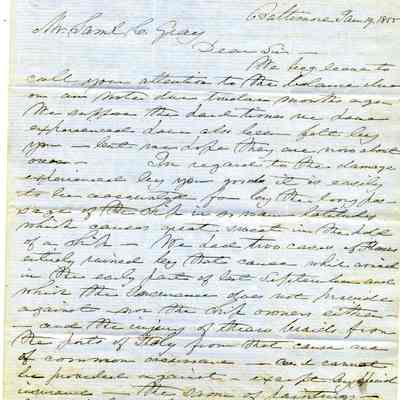 Baltimore Jan 19, 1855
Mr. Saml C. Gray
Dear Sir —
We beg leave to
call your attention to the balance due
on our note due twelve months ago
We suppose the hard times we have
experienced have also been felt by
you — but we hope they are now about
over — In regard to the damage
experienced by your goods it is easily
to be accounted for by the long pas-
sage of the ship in warm latitudes
which causes great sweat in the hold
of a ship — We had two cases of
entirely ruined by that cause which arrived
in the early part of last September and
which the Insurance does not provide
against — nor the ship owners either
— and the injury of from
the ports of Italy from that cause are
of common occurrence — and cannot
be provided against — except by
insurance — the of paintings —